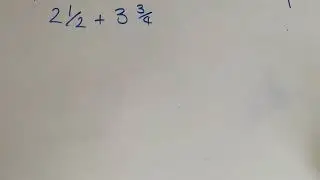 2 1/2 + 3 3/4